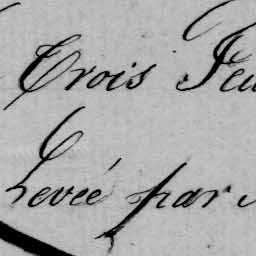 Trois Feu
Levée par